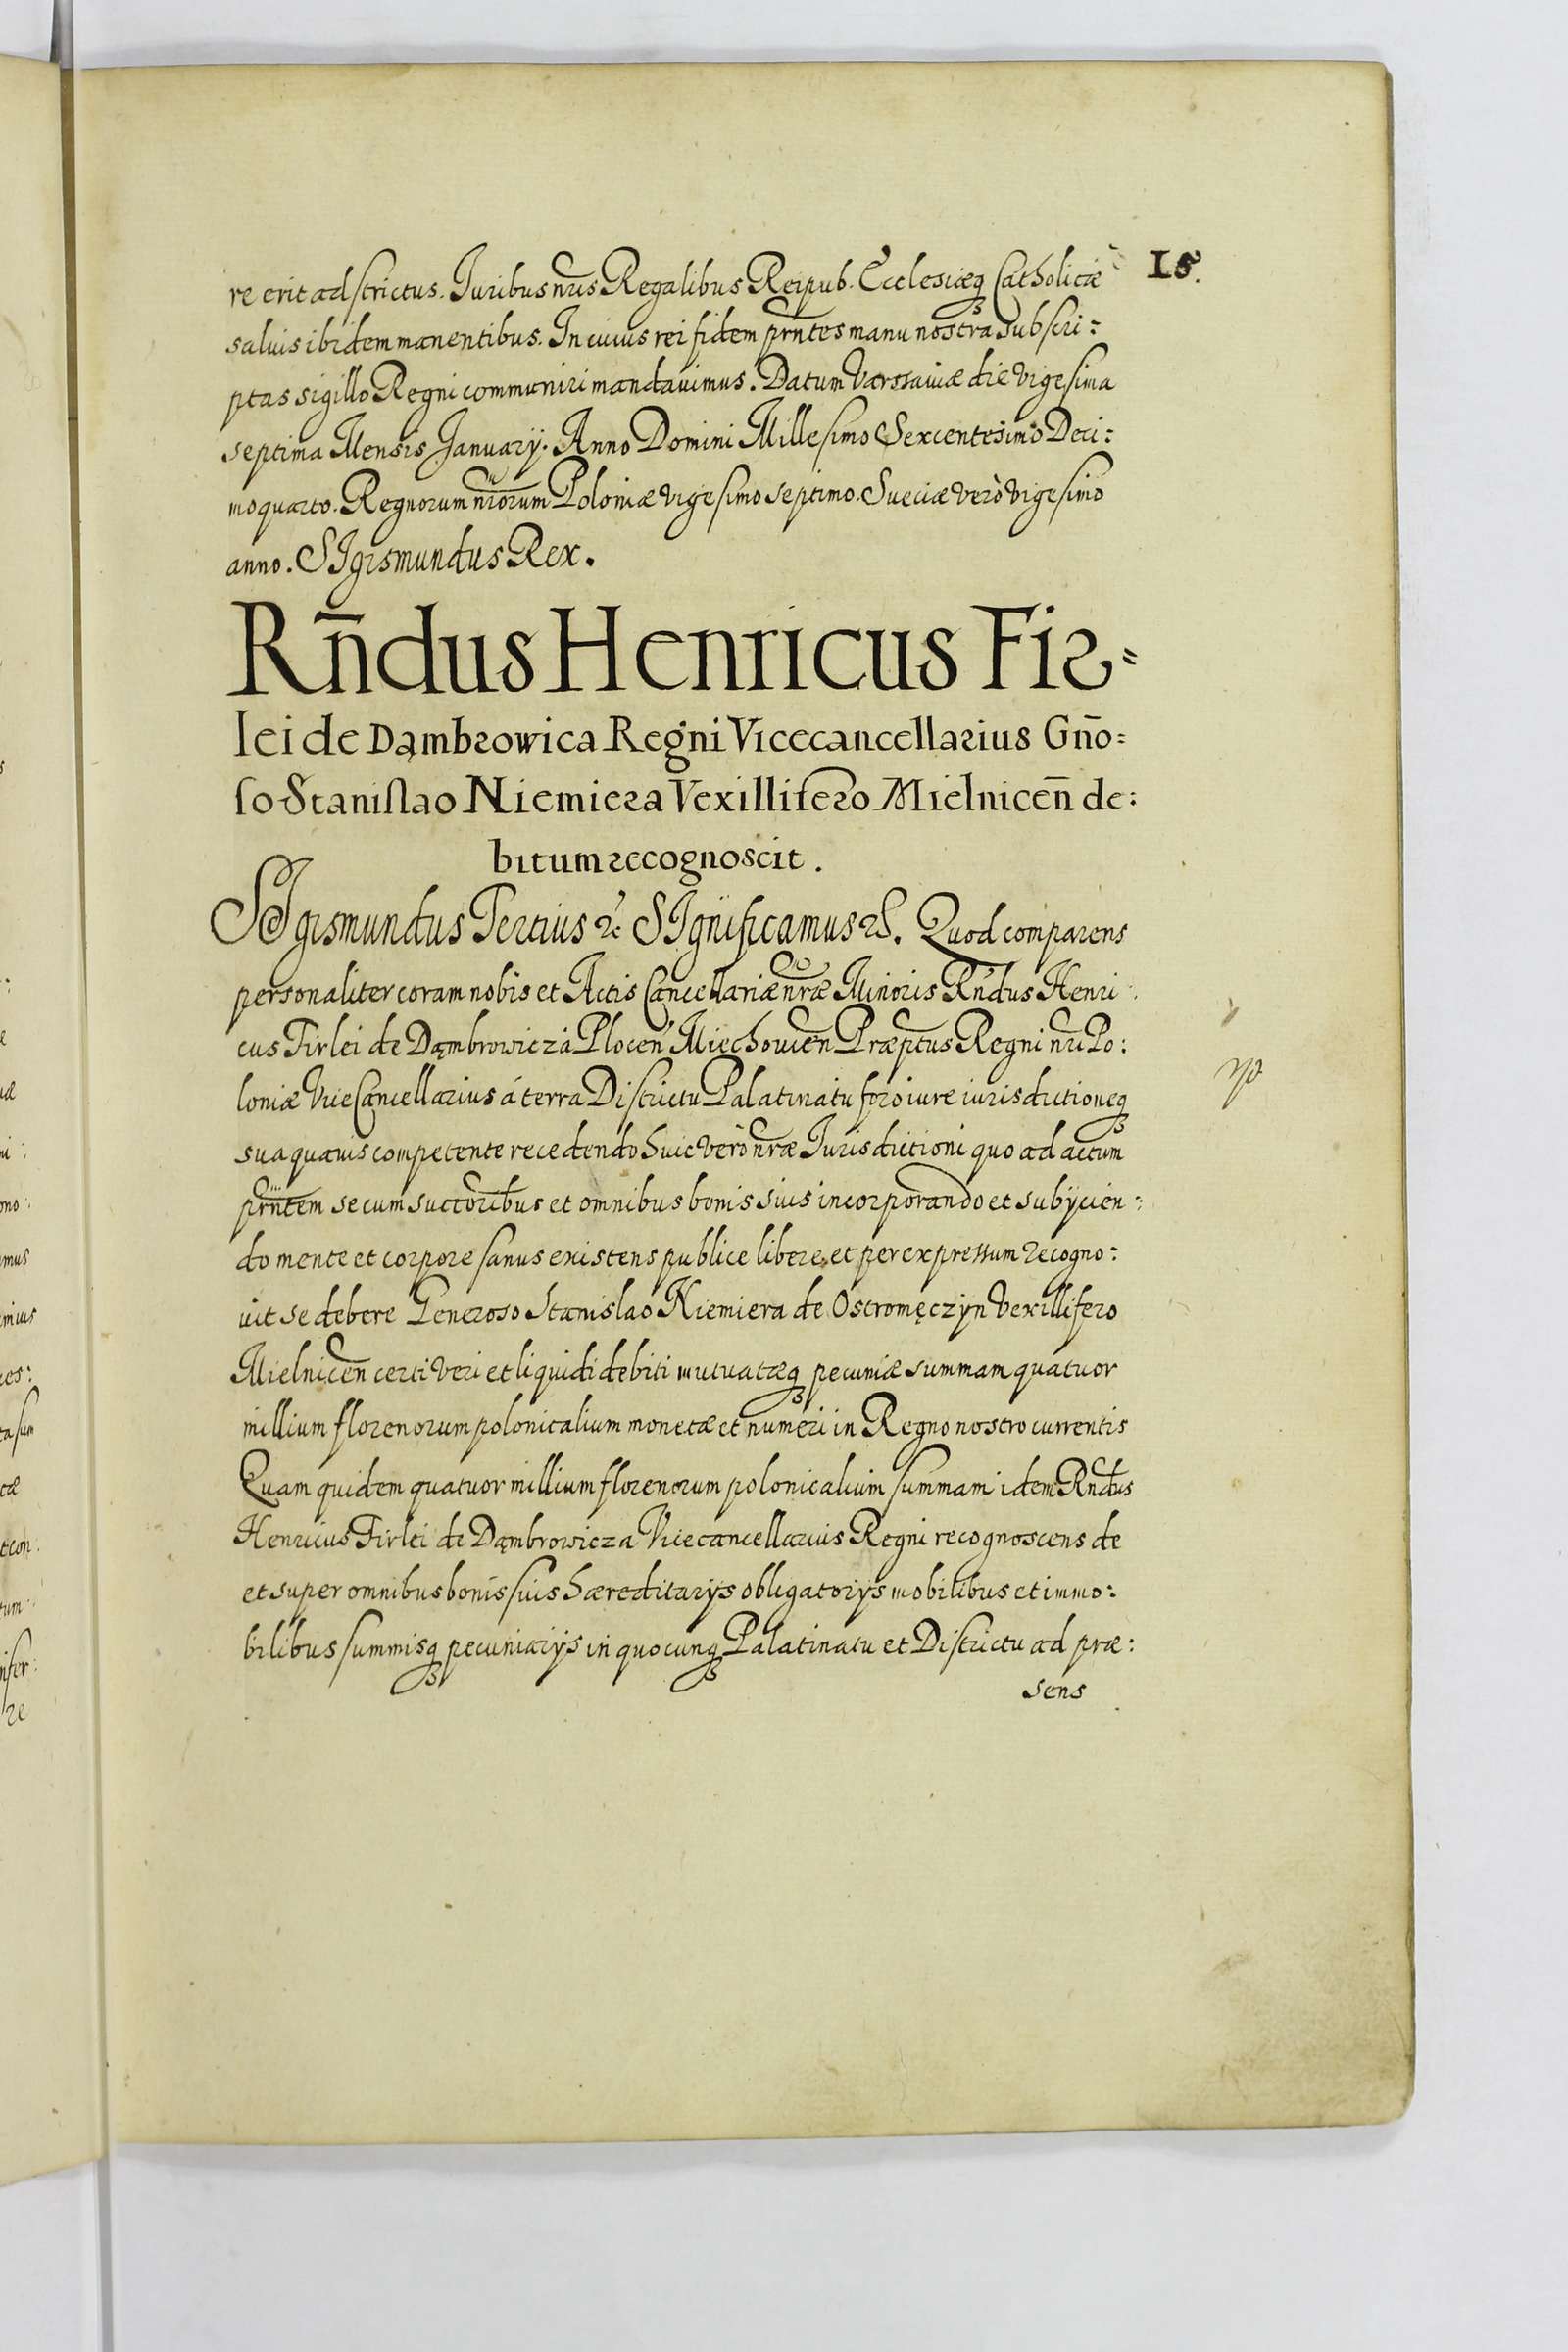 15.
re erit adstrictus. Juribus nr̃is Regalibus Reipub. Ecclesiæq₃ Catholicæ
saluis ibidem manentibus. In cuius rei fidem prñtes manu nostra subscri:
ptas sigillo Regni communiri mandauimus. Datum Varssauiæ die vigesima
septima Mensis Januarÿ. Anno Domini Millesimo Sexcentesimo Deci:
moquarto. Regnorum nr̃orum Poloniæ vigesimo septimo. Sueciæ verò vigesimo
anno. SIgismundus Rex.
Rñdus Henricus Fir=
lei de Dąmbrowica Regni Vicecancellarius Gño:
so Stanislao Niemiera Vexillifero Mielniceñ de:
bitum recognoscit.
SIgismundus Tertius &c SIgnificamus &c. Quod comparens
personaliter coram nobis et Actis Cancellariæ nr̃æ Minoris Rñdus Henri
cus Firlei de Dąmbrowicza Ploceñ Miechouieñ Præptus Regni nr̃i Po:
loniæ ViceCancellarius á terra Districtu Palatinatu foro iure iurisdictioneq₃
sua quauis competente recedendo huic verò nr̃æ Jurisdictioni quo ad actum
prñtem se cum succoribus et omnibus bonis suis incorporando et subÿcien:
do mente et corpore sanus existens publice libere et per expressum recogno:
uit se debere Generoso Stanislao Niemiera de Ostromęczyn Vexillifero
Mielniceñ certi veri et liquidi debiti mutuatæq₃ pecuniæ summam quatuor
millium florenorum polonicalium monetæ et numeri in Regno nostro currentis
Quam quidem quatuor millium florenorum polonicalium summam idem Rñdus
Henricus Firlei de Dąmbrowicza Vicecancellarius Regni recognoscens de
et super omnibus bonis suis hæreditarÿs obligatorÿs mobilibus et immo:
bilibus summisq₃ pecuniarÿs in quocunq₃ Palatinatu et Districtu ad præ:
sens